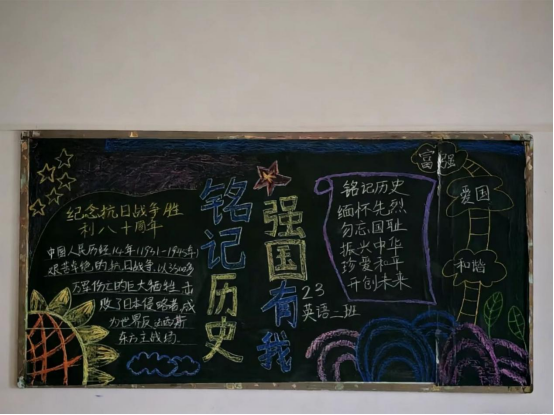 纪念抗日战争胜
利八十周年
中国人民历经14年(1931-1945年)
艰苦卓绝的抗日战争,以3500多
万军伤亡的巨大牺牲击
败了日本侵略者,成
为世界反法西斯
东方主战场.
铭记历史
强国有我
23
英语二班
铭记历史
缅怀先烈
勿忘国耻
振兴中华
珍爱和平
开创未来
富强
爱国
和谐